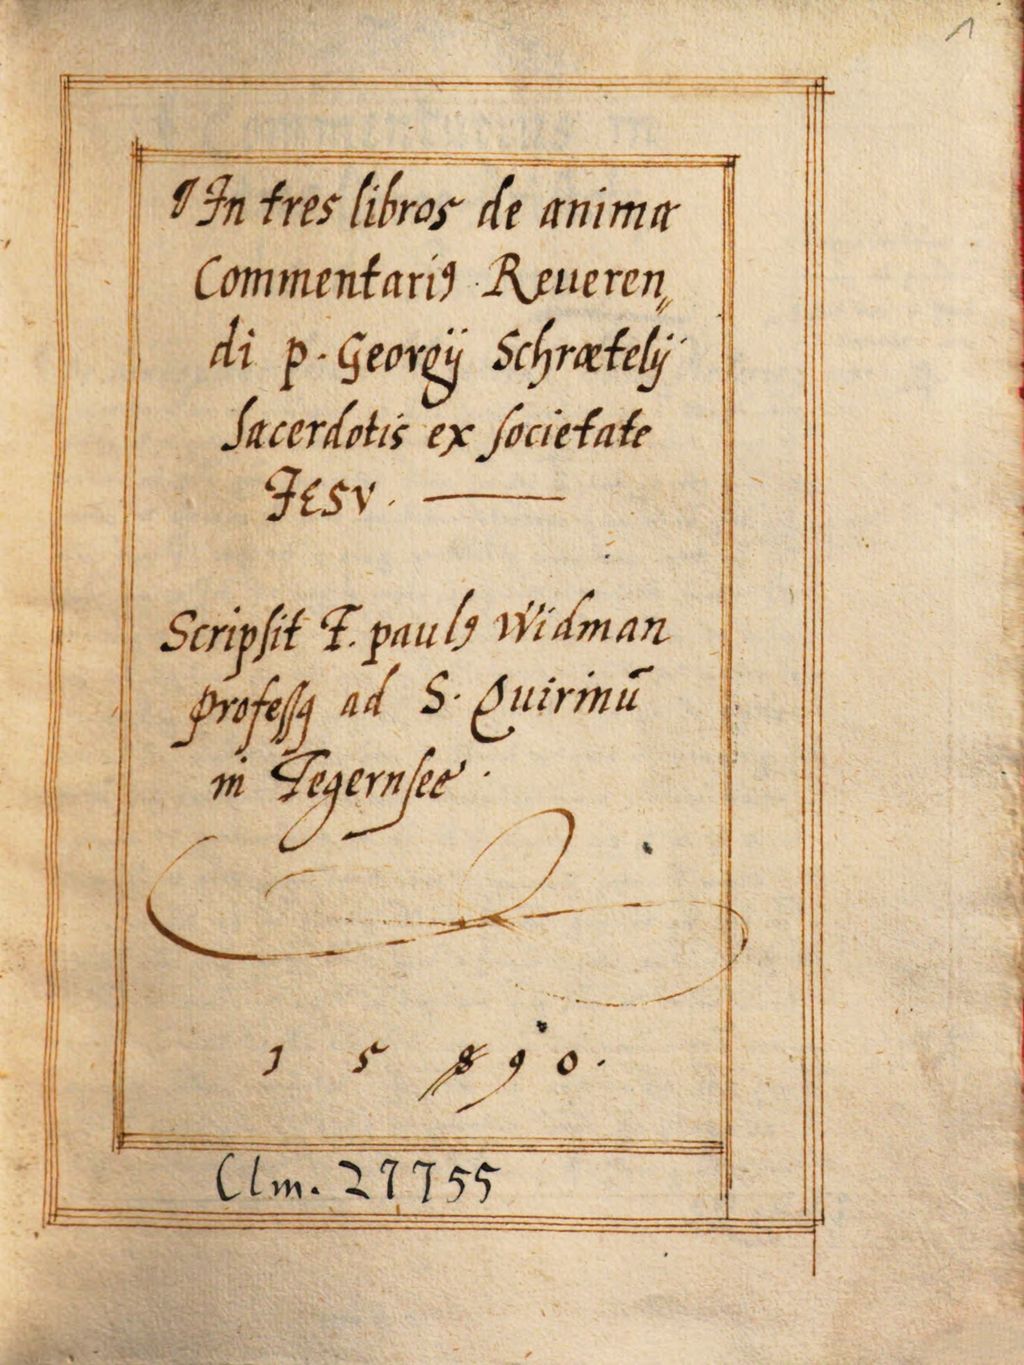 1
In tres libros de anima
Commentariꝰ Reueren„
di p. Georgij Schrætelij
Sacerdotis ex societate
JESV. —
Scripsit F. paulꝰ Widman
professꝰ ad S. Quirinū
in Tegernsee.
1 5 8 9 0.
Clm. 27755